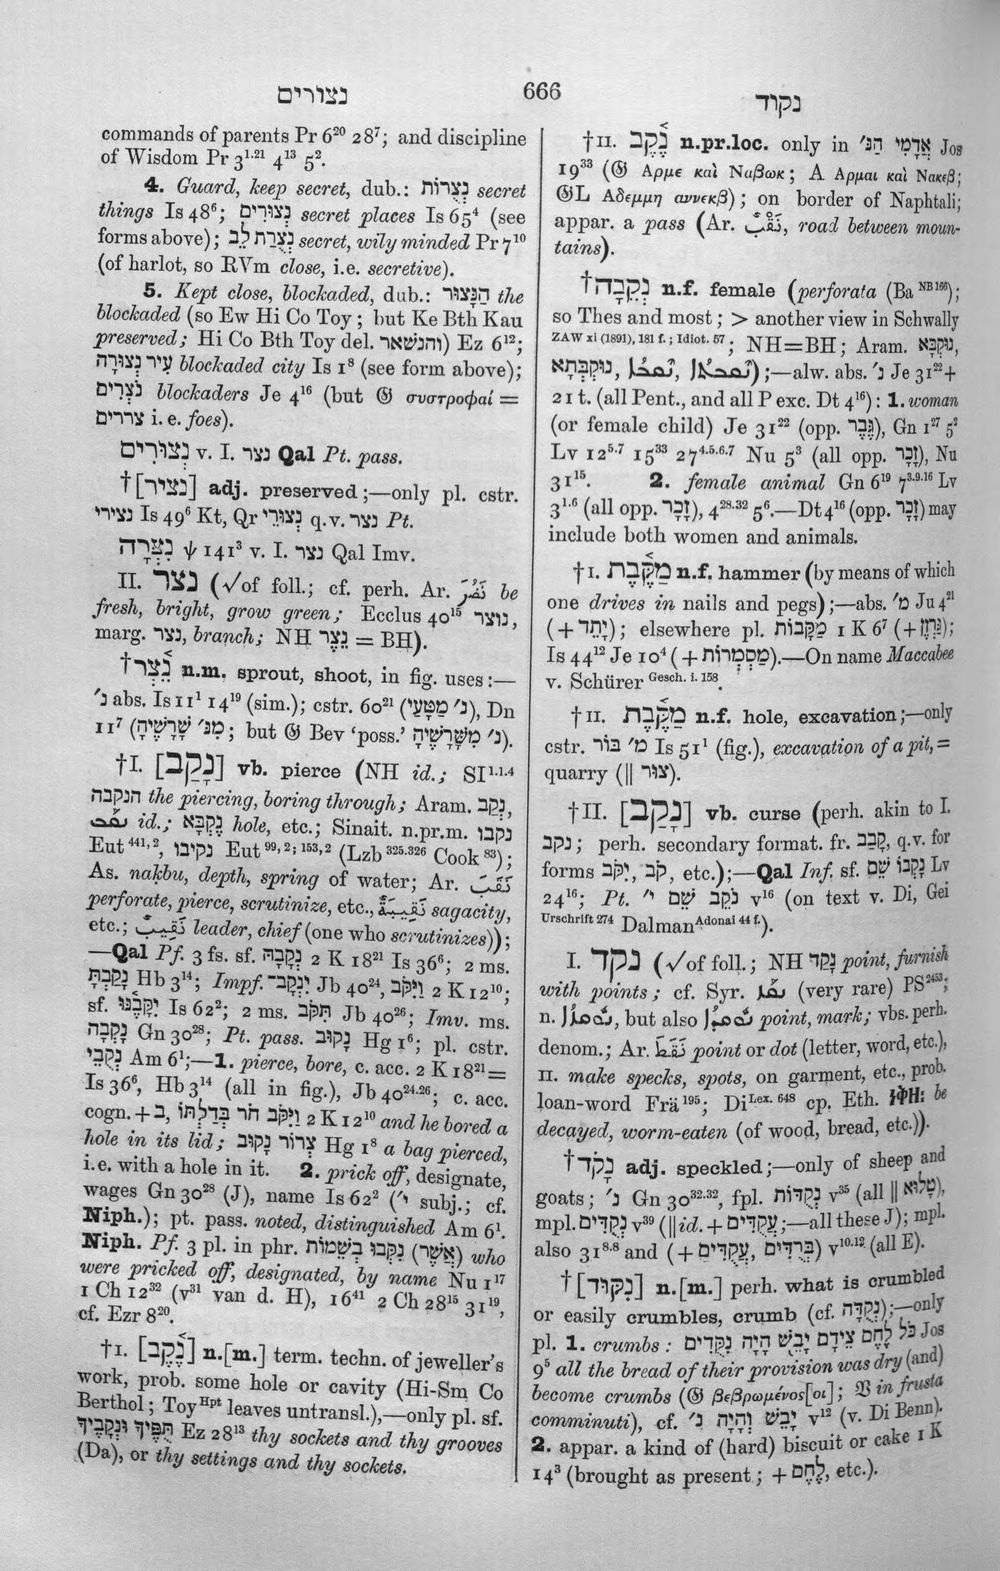 נצורים
666
נקוד
commands of parents Pr 6²⁰ 28⁷; and discipline
of Wisdom Pr 3¹·²¹ 4¹³ 5².
4. Guard, keep secret, dub.: נְצֻרוֹת secret
things Is 48⁶; נְצוּרִים secret places Is 65⁴ (see
forms above); נְצֻרַת לֵב secret, wily minded Pr 7¹⁰
(of harlot, so RVm close, i.e. secretive).
5. Kept close, blockaded, dub.: הַנָּצוּר the
blockaded (so Ew Hi Co Toy; but Ke Bth Kau
preserved; Hi Co Bth Toy del. והנשאר) Ez 6¹²;
עִיר נְצוּרָה blockaded city Is 1⁸ (see form above);
נֹצְרִים blockaders Je 4¹⁶ (but 𝔊 συστροφαί =
צררים i.e. foes).
נְצוּרִים v. I. נצר Qal Pt. pass.
†[נָצִיר] adj. preserved;—only pl. cstr.
נצירי Is 49⁶ Kt, Qr נְצוּרֵי q.v. נצר Pt.
נִצְּרָה ψ 141³ v. I. נצר Qal Imv.
II. נצר (√of foll.; cf. perh. Ar. نَضَرَ be
fresh, bright, grow green; Ecclus 40¹⁵ נוצר,
marg. נצר, branch; NH נֵצֶר = BH).
†נֵ֫צֶר n.m. sprout, shoot, in fig. uses:—
נ׳ abs. Is 11¹ 14¹⁹ (sim.); cstr. 60²¹ (נ׳ מַטָּעַי), Dn
11⁷ (מִנּ׳ שָׁרָשֶׁיהָ; but 𝔊 Bev ‘poss.’ נ׳ מִשָּׁרָשֶׁיהָ).
†I. [נָקַב] vb. pierce (NH id.; SI¹·¹·⁴
הנקבה the piercing, boring through; Aram. נְקַב,
ܢܩܒ id.; נֶקְבָּא hole, etc.; Sinait. n.pr.m. נקבו
Eut ⁴⁴¹,², נקיבו Eut ⁹⁹,²; ¹⁵³,² (Lzb ³²⁵·³²⁶ Cook ⁸³);
As. naḳbu, depth, spring of water; Ar. نَقَبَ
perforate, pierce, scrutinize, etc., نَقِيبَةٌ sagacity,
etc.; نَقِيبٌ leader, chief (one who scrutinizes));
—Qal Pf. 3 fs. sf. נְקָבָהּ 2 K 18²¹ Is 36⁶; 2 ms.
נָקַבְתָּ Hb 3¹⁴; Impf. יִנְקָב־ Jb 40²⁴, וַיִּקֹּב 2 K 12¹⁰;
sf. יִקֳּבֶנּוּ Is 62²; 2 ms. תִּקֹּב Jb 40²⁶; Imv. ms.
נָקְבָה Gn 30²⁸; Pt. pass. נָקוּב Hg 1⁶; pl. cstr.
נְקֻבֵי Am 6¹;—1. pierce, bore, c. acc. 2 K 18²¹=
Is 36⁶, Hb 3¹⁴ (all in fig.), Jb 40²⁴·²⁶; c. acc.
cogn. + ב, וַיִּקֹּב חֹר בְּדַלְתּוֹ 2 K 12¹⁰ and he bored a
hole in its lid; צְרוֹר נָקוּב Hg 1⁸ a bag pierced,
i.e. with a hole in it. 2. prick off, designate,
wages Gn 30²⁸ (J), name Is 62² (י׳ subj.; cf.
Niph.); pt. pass. noted, distinguished Am 6¹.
Niph. Pf. 3 pl. in phr. (אֲשֶׁר) נִקְּבוּ בְּשֵׁמוֹת who
were pricked off, designated, by name Nu 1¹⁷
1 Ch 12³² (v³¹ van d. H), 16⁴¹ 2 Ch 28¹⁵ 31¹⁹,
cf. Ezr 8²⁰.
†I. [נֶ֫קֶב] n.[m.] term. techn. of jeweller’s
work, prob. some hole or cavity (Hi-Sm Co
Berthol; Toy ᴴᵖᵗ leaves untransl.),—only pl. sf.
תֻּפֶּיךָ וּנְקָבֶיךָ Ez 28¹³ thy sockets and thy grooves
(Da), or thy settings and thy sockets.
†II. נֶ֫קֶב n.pr.loc. only in אֲדָמִי הַנּ׳ Jos
19³³ (𝔊 Αρμε καὶ Ναβωκ; A Αρμαι και Νακεβ;
𝔊L Αδεμμη αννεκβ); on border of Naphtali;
appar. a pass (Ar. نَقْبٌ, road between moun-
tains).
†נְקֵבָה n.f. female (perforata (Ba ᴺᴮ ¹⁶⁶);
so Thes and most; > another view in Schwally
ZAW xi (1891), 181 f.; Idiot. 57; NH=BH; Aram. נוּקְבָּא,
נוּקְבְתָא, ܢܩܒܐ, ܢܩܒ, ܢܩܒܬܐ);—alw. abs. נ׳ Je 31²²+
21 t. (all Pent., and all P exc. Dt 4¹⁶): 1. woman
(or female child) Je 31²² (opp. גֶּבֶר), Gn 1²⁷ 5²
Lv 12⁵·⁷ 15³³ 27⁴·⁵·⁶·⁷ Nu 5³ (all opp. זָכָר), Nu
31¹⁵. 2. female animal Gn 6¹⁹ 7³·⁹·¹⁶ Lv
3¹·⁶ (all opp. זָכָר), 4²⁸·³² 5⁶.—Dt 4¹⁶ (opp. זָכָר) may
include both women and animals.
†I. מַקֶּ֫בֶת n.f. hammer (by means of which
one drives in nails and pegs);—abs. מ׳ Ju 4²¹
(+ יָתֵד); elsewhere pl. מַקָּבוֹת 1 K 6⁷ (+ גַּרְזֶן);
Is 44¹² Je 10⁴ (+ מַסְמְרוֹת).—On name Maccabee
v. Schürer Gesch. i. 158.
†II. מַקֶּ֫בֶת n.f. hole, excavation;—only
cstr. מ׳ בּוֹר Is 51¹ (fig.), excavation of a pit, =
quarry (‖ צוּר).
†II. [נָקַב] vb. curse (perh. akin to I.
נקב; perh. secondary format. fr. קָבַב, q.v. for
forms קֹב, יִקֹּב, etc.);—Qal Inf. sf. נָקְבוֹ שֵׁם Lv
24¹⁶; Pt. נֹקֵב שֵׁם י׳ v¹⁶ (on text v. Di, Gei
Urschrift 274 Dalman Adonai 44 f.).
I. נקד (√of foll.; NH נָקַד point, furnish
with points; cf. Syr. ܢܩܕ (very rare) PS²⁴⁵³;
n. ܢܘܩܕܐ, but also ܢܘܩܙܐ point, mark; vbs. perh.
denom.; Ar. نَقَطَ point or dot (letter, word, etc.),
II. make specks, spots, on garment, etc., prob.
loan-word Frä ¹⁹⁵; Di Lex. 648 cp. Eth. ነቅዘ: be
decayed, worm-eaten (of wood, bread, etc.)).
†נָקֹד adj. speckled;—only of sheep and
goats; נ׳ Gn 30³²·³², fpl. נְקֻדּוֹת v³⁵ (all ‖ טָלוּא),
mpl. נְקֻדִּים v³⁹ (‖ id. + עֲקֻדִּים;—all these J); mpl.
also 31⁸·⁸ and (+ עֲקֻדִּים, בְּרֻדִּים) v¹⁰·¹² (all E).
†[נִקּוּד] n.[m.] perh. what is crumbled
or easily crumbles, crumb (cf. נְקֻדָּה);—only
pl. 1. crumbs: כֹּל לֶחֶם צֵידָם יָבֵשׁ הָיָה נִקֻּדִים Jos
9⁵ all the bread of their provision was dry (and)
become crumbs (𝔊 βεβρωμένος[οι]; 𝔙 in frusta
comminuti), cf. יָבֵשׁ וְהָיָה נ׳ v¹² (v. Di Benn).
2. appar. a kind of (hard) biscuit or cake 1 K
14³ (brought as present; + לֶחֶם, etc.).